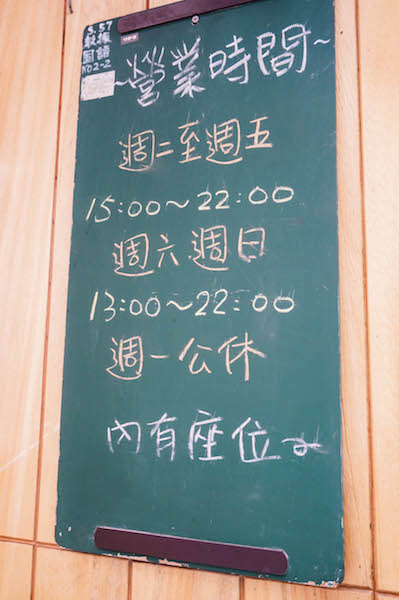 ~營業時間~
週二至週五
15:00~22:00
週六週日
13:00~22:00
週一公休
內有座位~